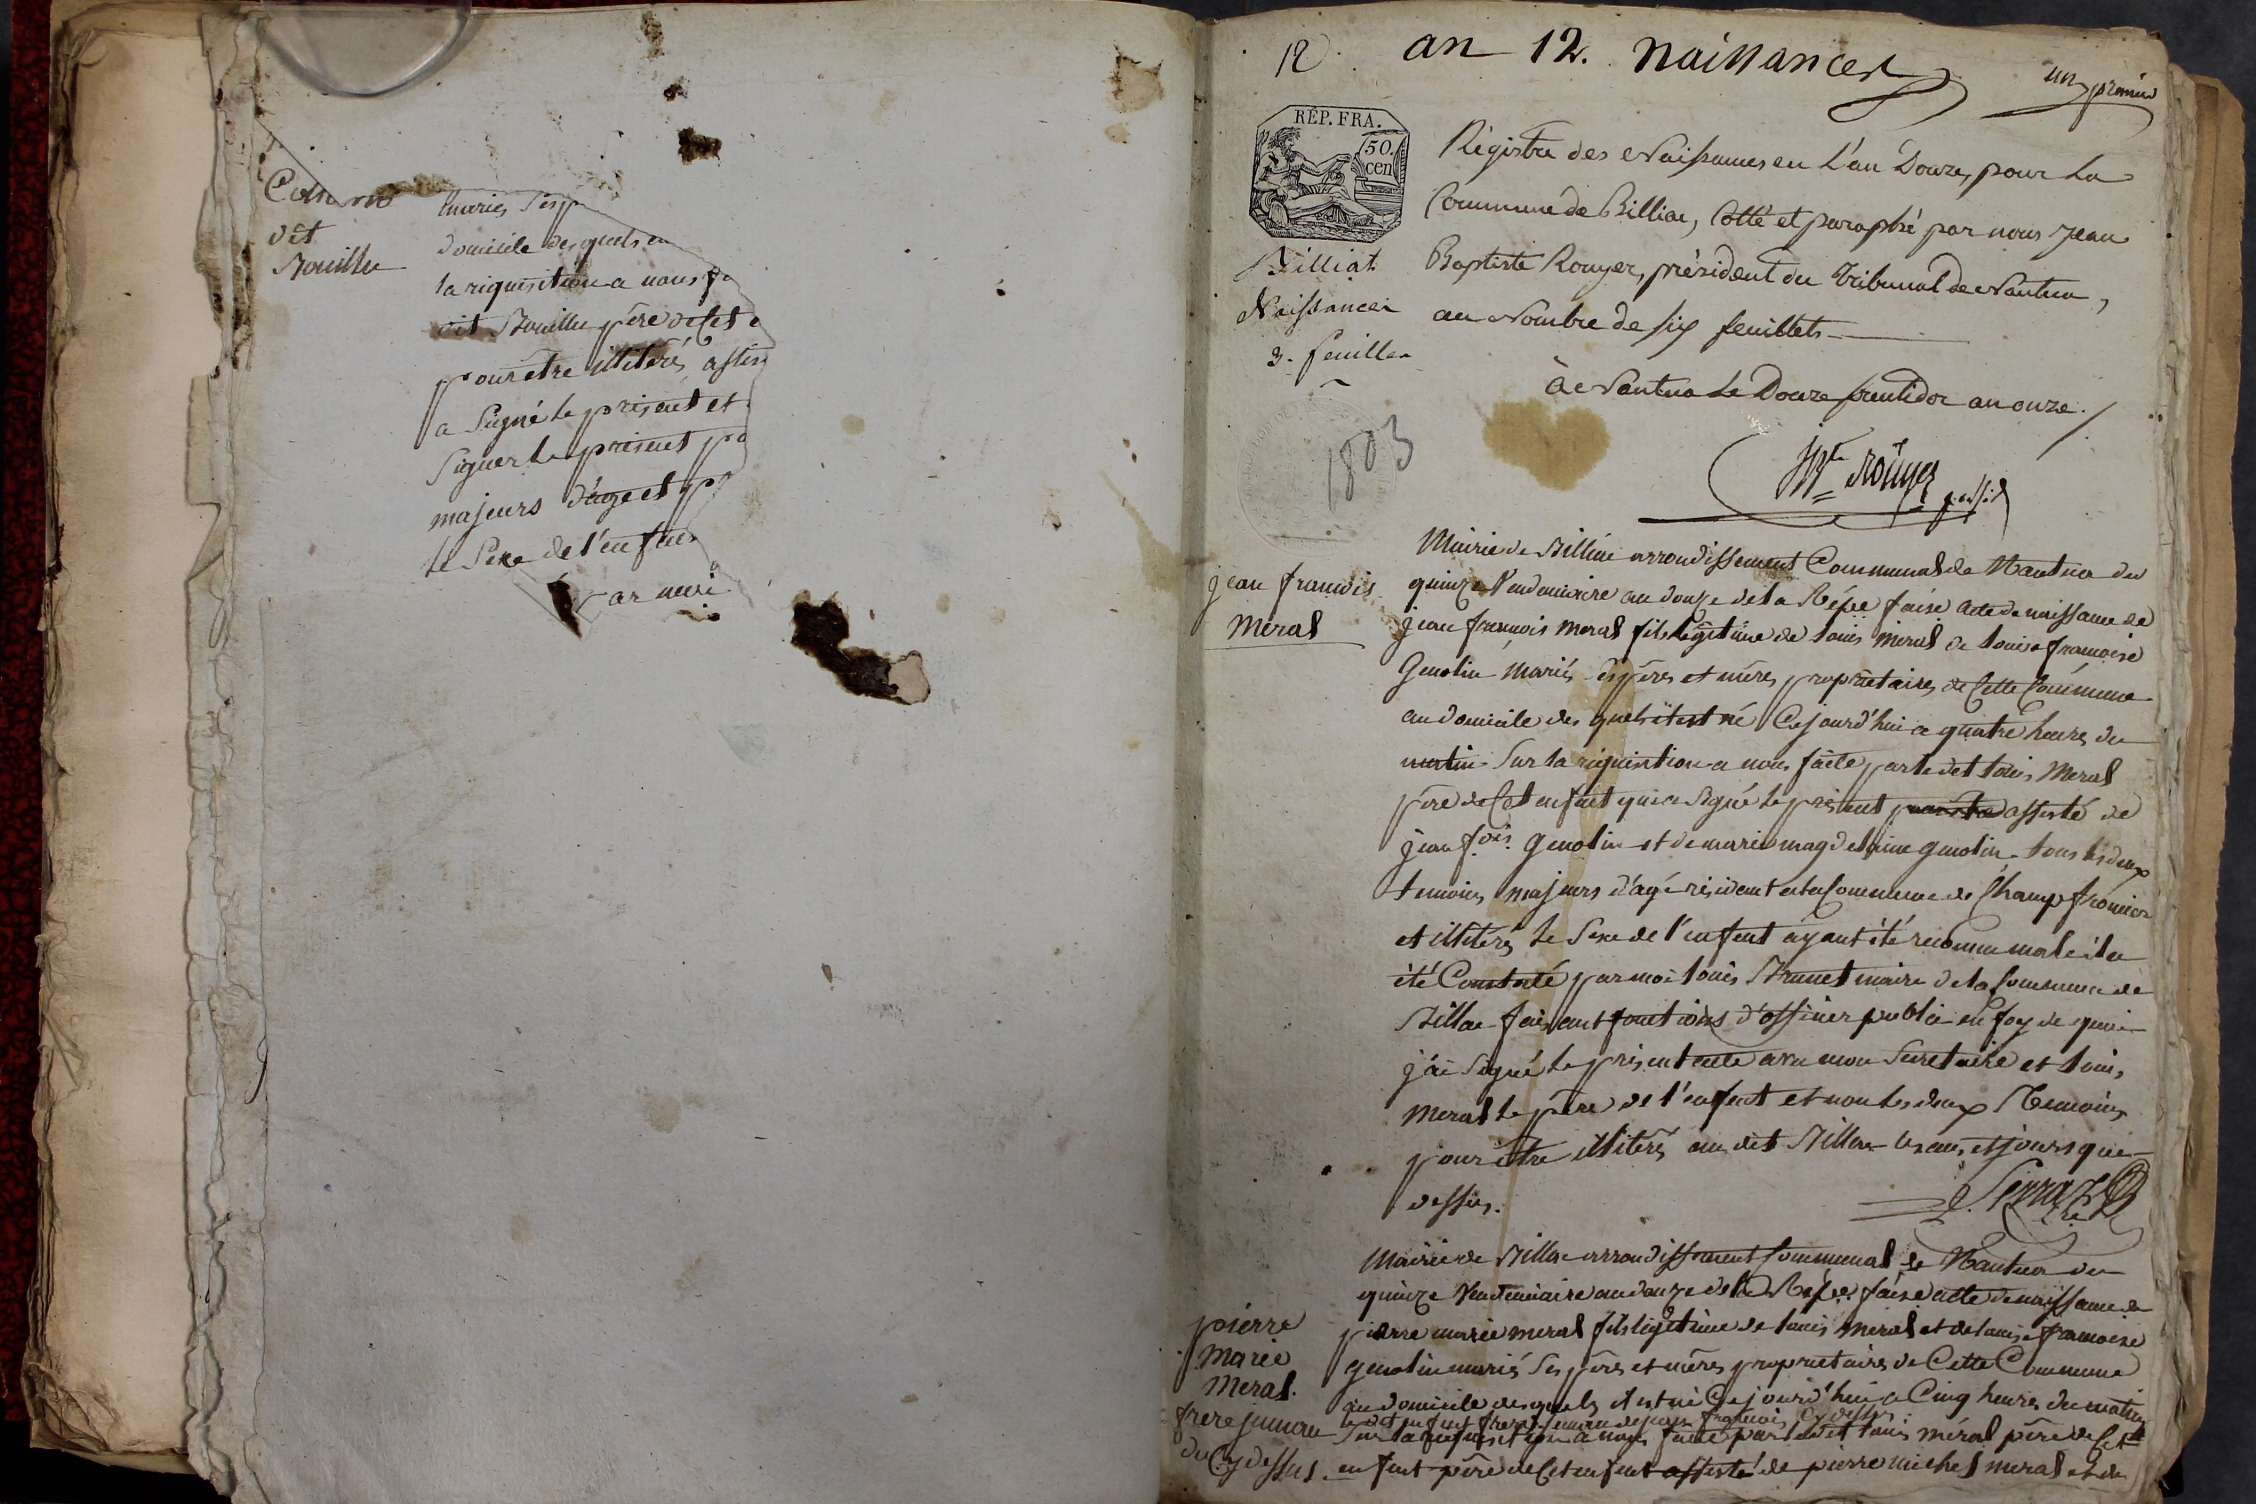 dit
Bouillu
mariés ses p
domicile desquels
la requisition a nous fa
dit Bouillu père de cet
pour être illitéré, assis
a Signé le présent et
Signer le présent po
majeurs d'age et
le Sexe de l'enfan
Par moi
12 an 12. Naissances
un premier
RÉP. FRA.
50.
cen
Billiat
Naissances
3. feuilles
1803
Régistre des Naissances en L'an Douze, pour La
Commune de Billiac, Cotté et paraphé par nous Jean
Baptiste Rouyer, président du Tribunal de Nantua,
au Nombre de six feuillets
à Nantua Le Douze fructidor an onze.
Rouyer
jean francois
Meral
Mairie de Billiac arrondissement Communal de Nantua du
quinze Vendemiaire an douze de la Répee faise acte de naissance de
jean francois Meral fils légitime de louis Meral et louise francoise
Genolin mariés ses pères et mères propriétaires de Cette Commune
au domicile des quels il est né Cejourd'hui a quatre heures du
matin Sur la requisition a nous faite par le dit louis Meral
père de Cet enfant qui a Signé le présent assisté de
jean fois. Genolin et de marie magdelaine genolin tous les deux
temoins majeurs d'age résident en la Commune de Champfromier
et illitérés le Sexe de l'enfant ayant été reconnu male il a
été Constaté par moi louis Brunet maire de la Commune de
Billac faisant fonctions d'officier public en foy de quoi
j'ai Signé le présent acte avec mon Secretaire et louis
Meral le père de l'enfant et non les deux Temoins
pour être illitérés au dit Billac les an et jours que
dessus.
Pierre
Marie
Meral.
frere jumau
du Cy dessus
Mairie de Billac arrondissement Communal de Nantua du
quinze Vendemiaire an douze de la Répee faise acte de naissance de
pierre marie meral fils légitime de louis Meral et de louise francoise
genolin mariés Ses pères et mères propriétaires de Cette Commune
au domicile desquels il est né Cejourd'hui a Cinq heures du matin
le dit enfant frere Jumau de jean francois Cy dessus
Sur la requisition a nous faite par le dit louis méral père de Cet
enfant père de Cet enfant assisté de pierre michel meral et de